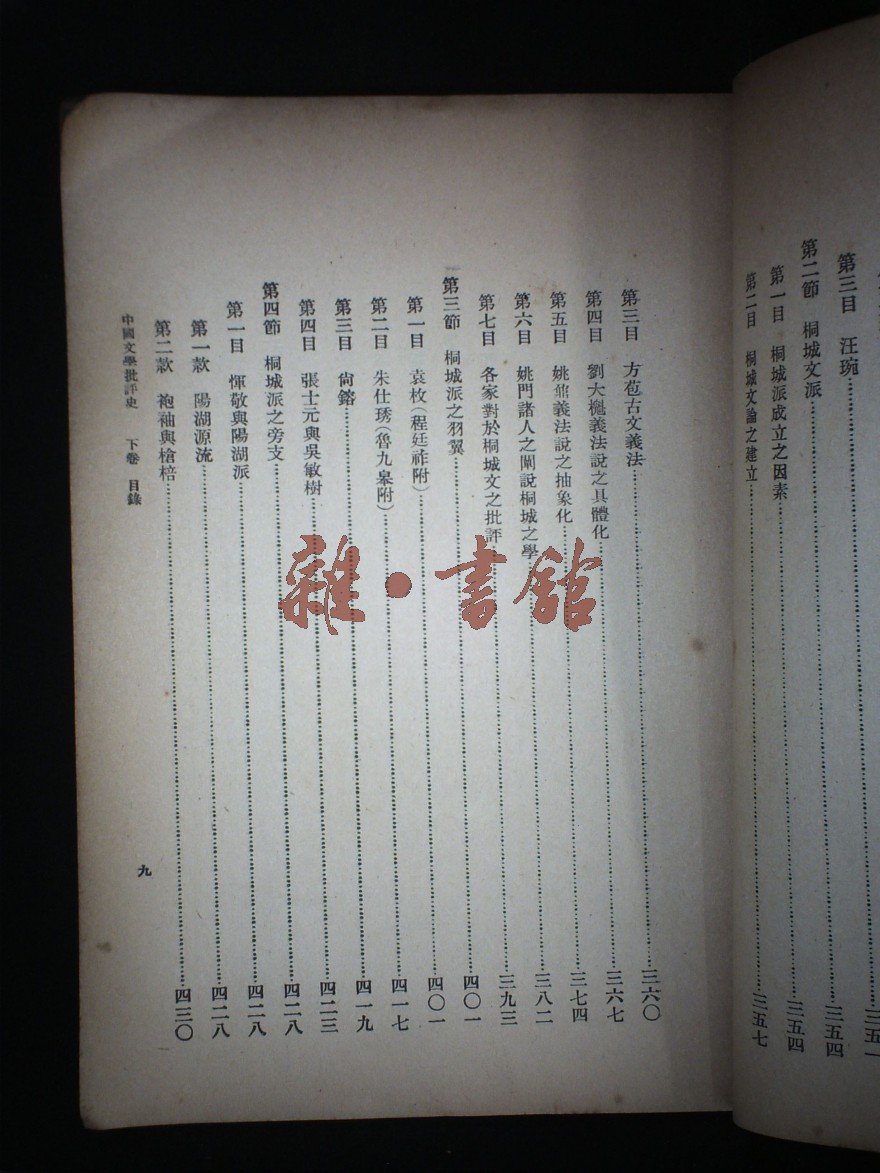 第三目 汪琬……三五一
第二節 桐城文派……三五四
第一目 桐城派成立之因素……三五四
第二目 桐城文論之建立……三五七
第三目 方苞古文義法……三六〇
第四目 劉大櫆義法說之具體化……三六七
第五目 姚鼐義法說之抽象化……三七四
第六目 姚門諸人之闡說桐城之學……三八二
第七目 各家對於桐城文之批評……三九三
第三節 桐城派之羽翼……四〇一
第一目 袁枚(程廷祚附)……四〇一
第二目 朱仕琇(魯九皋附)……四一七
第三目 尙鎔……四一九
第四目 張士元與吳敏樹……四二三
第四節 桐城派之旁支……四二八
第一目 惲敬與陽湖派……四二八
第一款 陽湖源流……四二八
第二款 袍袖與槍棓……四三〇
中國文學批評史 下卷 目錄
九
雜·書館